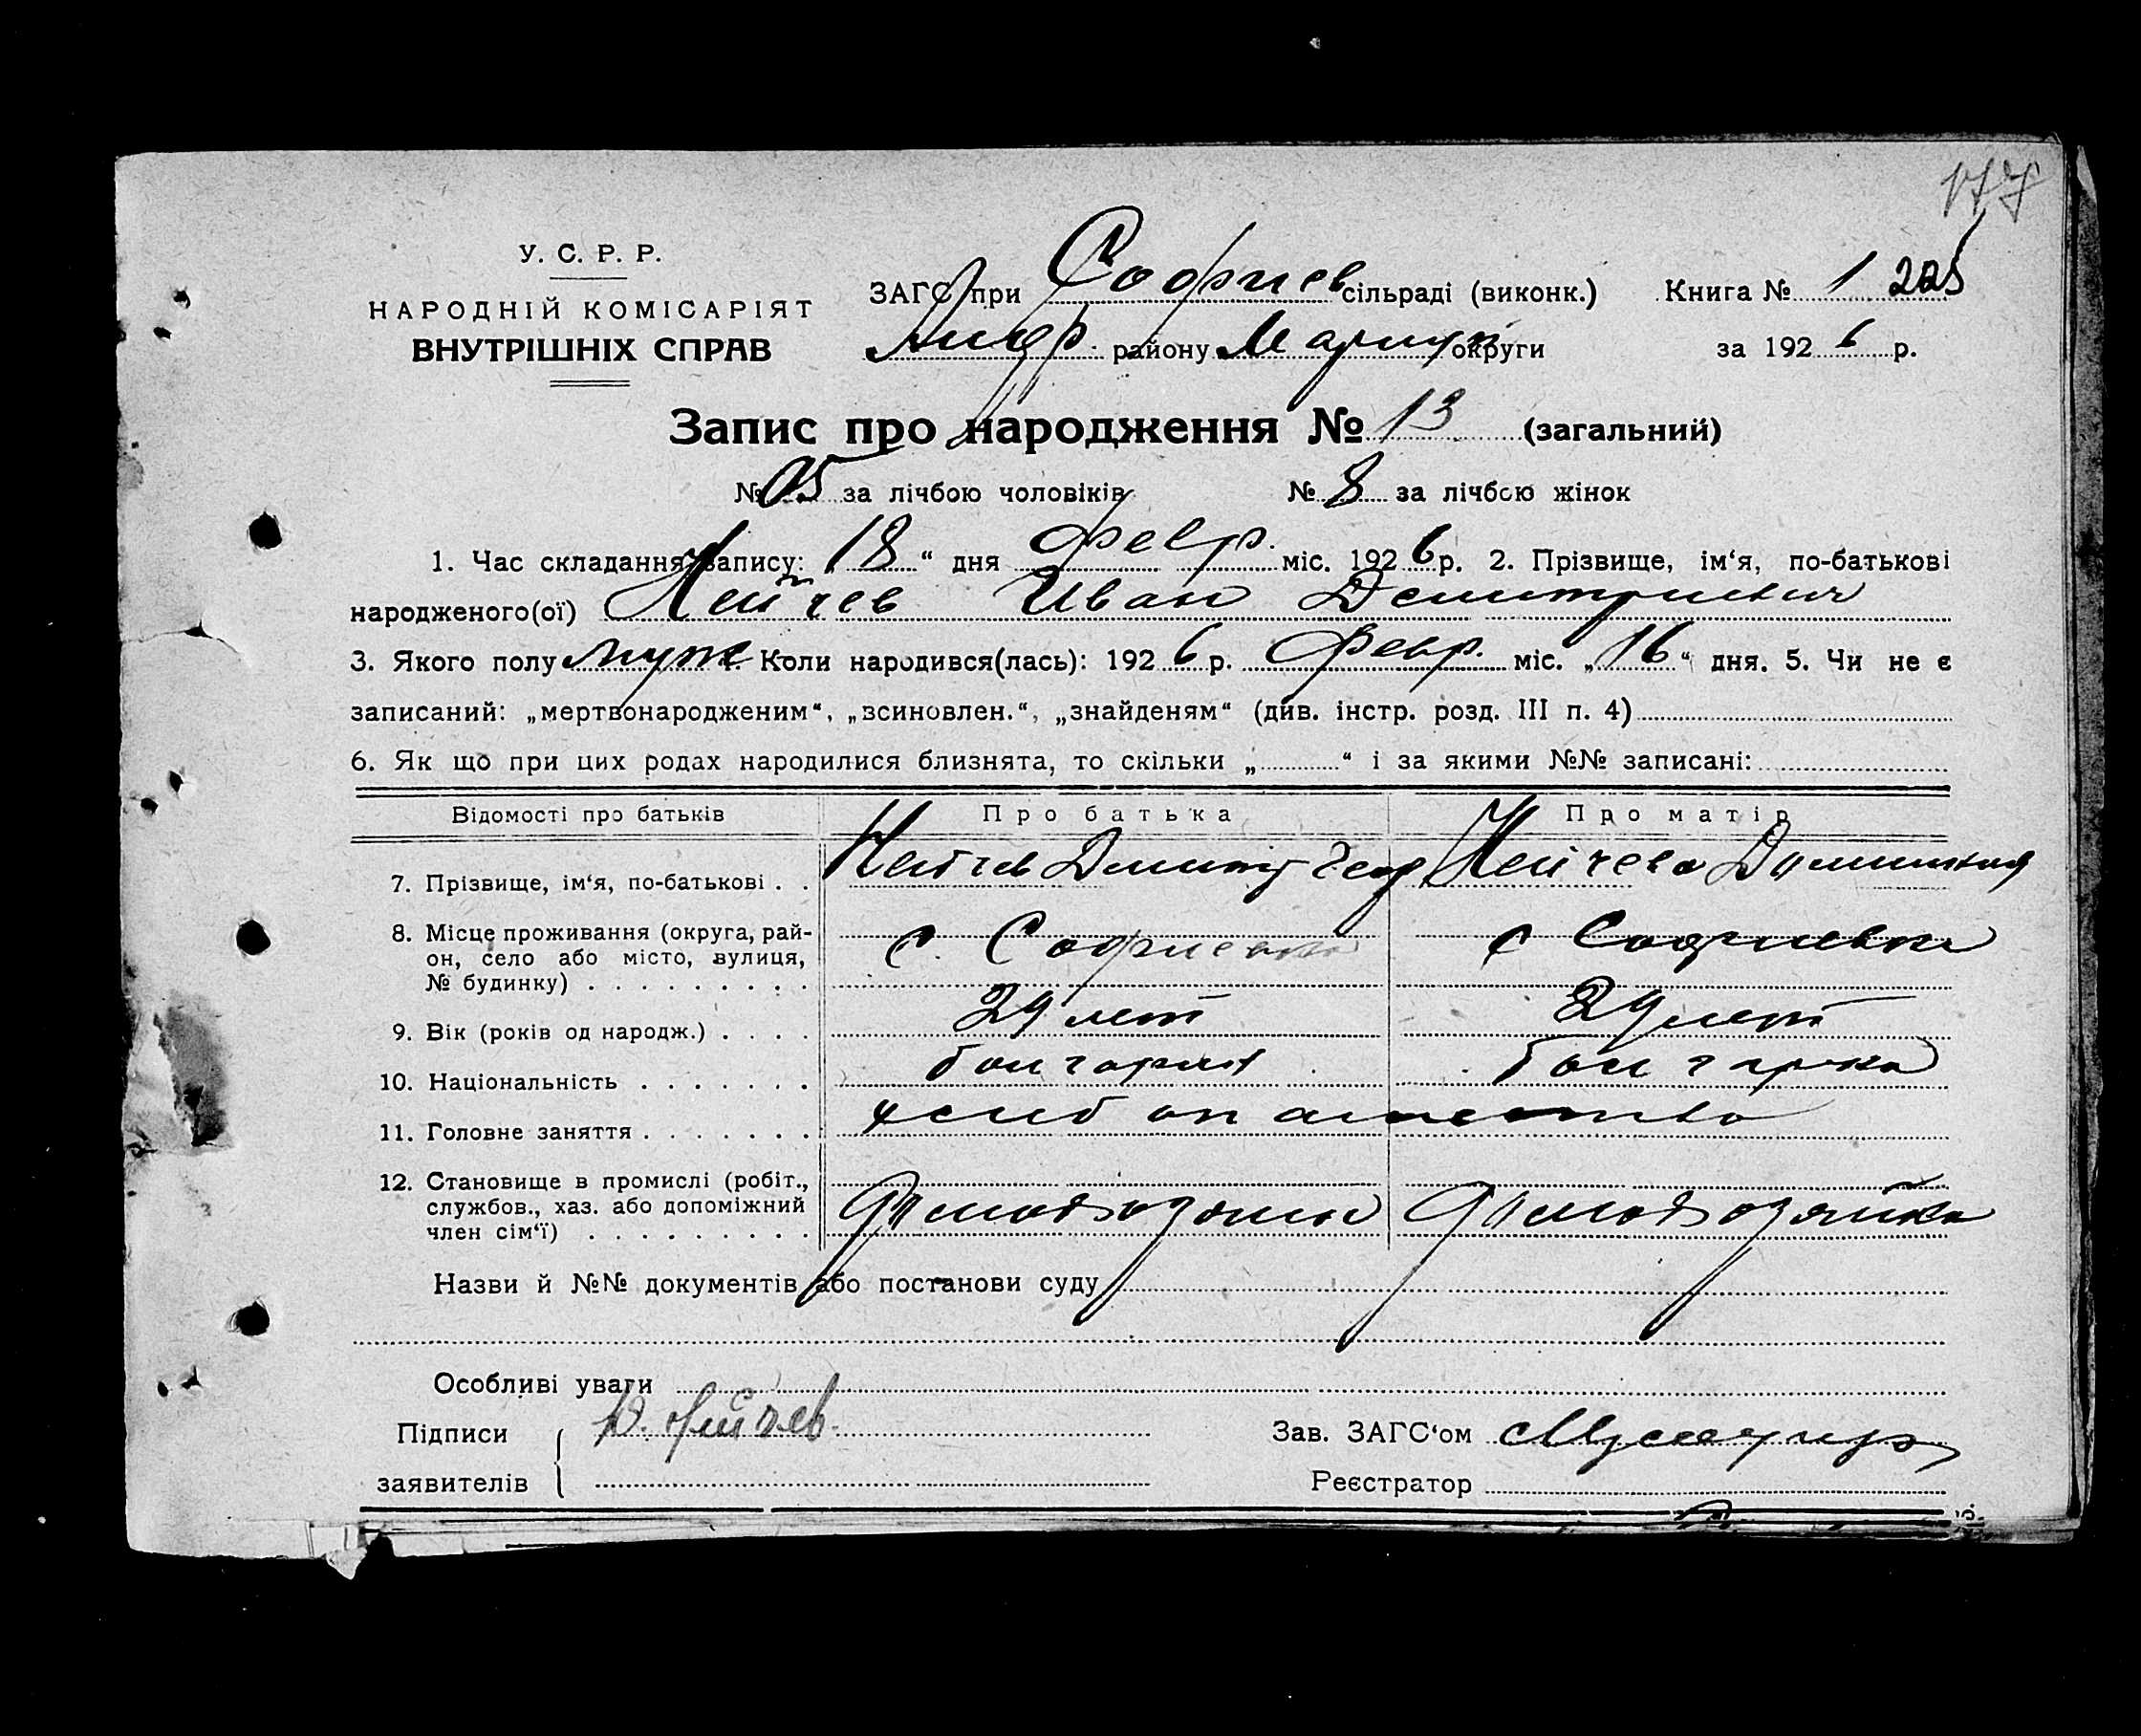 177
У. С. Р. Р.
НАРОДНІЙ КОМІСАРІЯТ
ВНУТРІШНІХ СПРАВ
ЗАГС при Софиев сільраді (виконк.) Книга № 1 225
району Мариуп округи за 1926 р.
Запис про народження № 13 (загальний)
№ 5 за лічбою чоловіків № 8 за лічбою жінок
1. Час складання запису: „18“ дня февр. міс. 1926 р. 2. Прізвище, ім‘я, по-батькові
народженого(ої) Нейчев Иван Демитриевич
3. Якого полу муж. Коли народився(лась): 1926 р. февр. міс. „16“ дня. 5. Чи не є
записаний: „мертвонародженим“, „всиновлен.“, „знайденям“ (див. інстр. розд. III п. 4)
6. Як що при цих родах народилися близнята, то скільки „ “ і за якими №№ записані:
Відомості про батьків Про батька Про матір
7. Прізвище, ім‘я, по-батькові . . Нейчев Дмитр Геор Нейчева
8. Місце проживання (округа, рай-
он, село або місто, вулиця, с. Софиевка с Софиевка
№ будинку) . . . . . . . . .
9. Вік (років од народж.) . . . . 29 лет 29 лет
10. Національність . . . . . . . болгарин болгарка
11. Головне заняття . . . . . . . хлебопашество
12. Становище в промислі (робіт.,
службов., хаз. або допоміжний домохозяин домохозяйка
член сім‘ї) . . . . . . . . .
Назви й №№ документів або постанови суду
Особливі уваги
Підписи Д. Нейчев. Зав. ЗАГС‘ом
заявителів Реєстратор